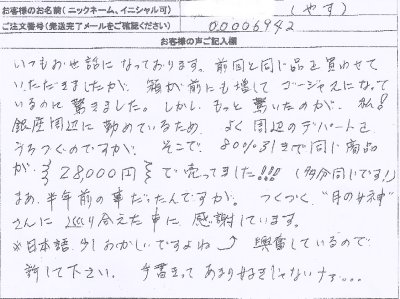 お客様のお名前(ニックネーム、イニシャル可) (やす)
ご注文番号(発送完了メールをご確認ください) 00006942
お客様の声ご記入欄
いつもお世話になっております。前回と同じ品を買わせて
いただきましたが、箱が前にも増してゴージャスになって
いるのに驚きました。しかしもっと驚いたのが、私!
銀座周辺に勤めているため、よく周辺のデパートを
うろつくのですが、そこで 80%引きで同じ商品
が、28,000円で売ってました!!!(多分同じです!)
まあ、半年前の事だったんですが。つくづく、"月の女神"
さんにめぐり合えた事に感謝しています。
※日本語、少しおかしいですよね 興奮しているので
許して下さい。手書きってあまり好きじゃないナァ...